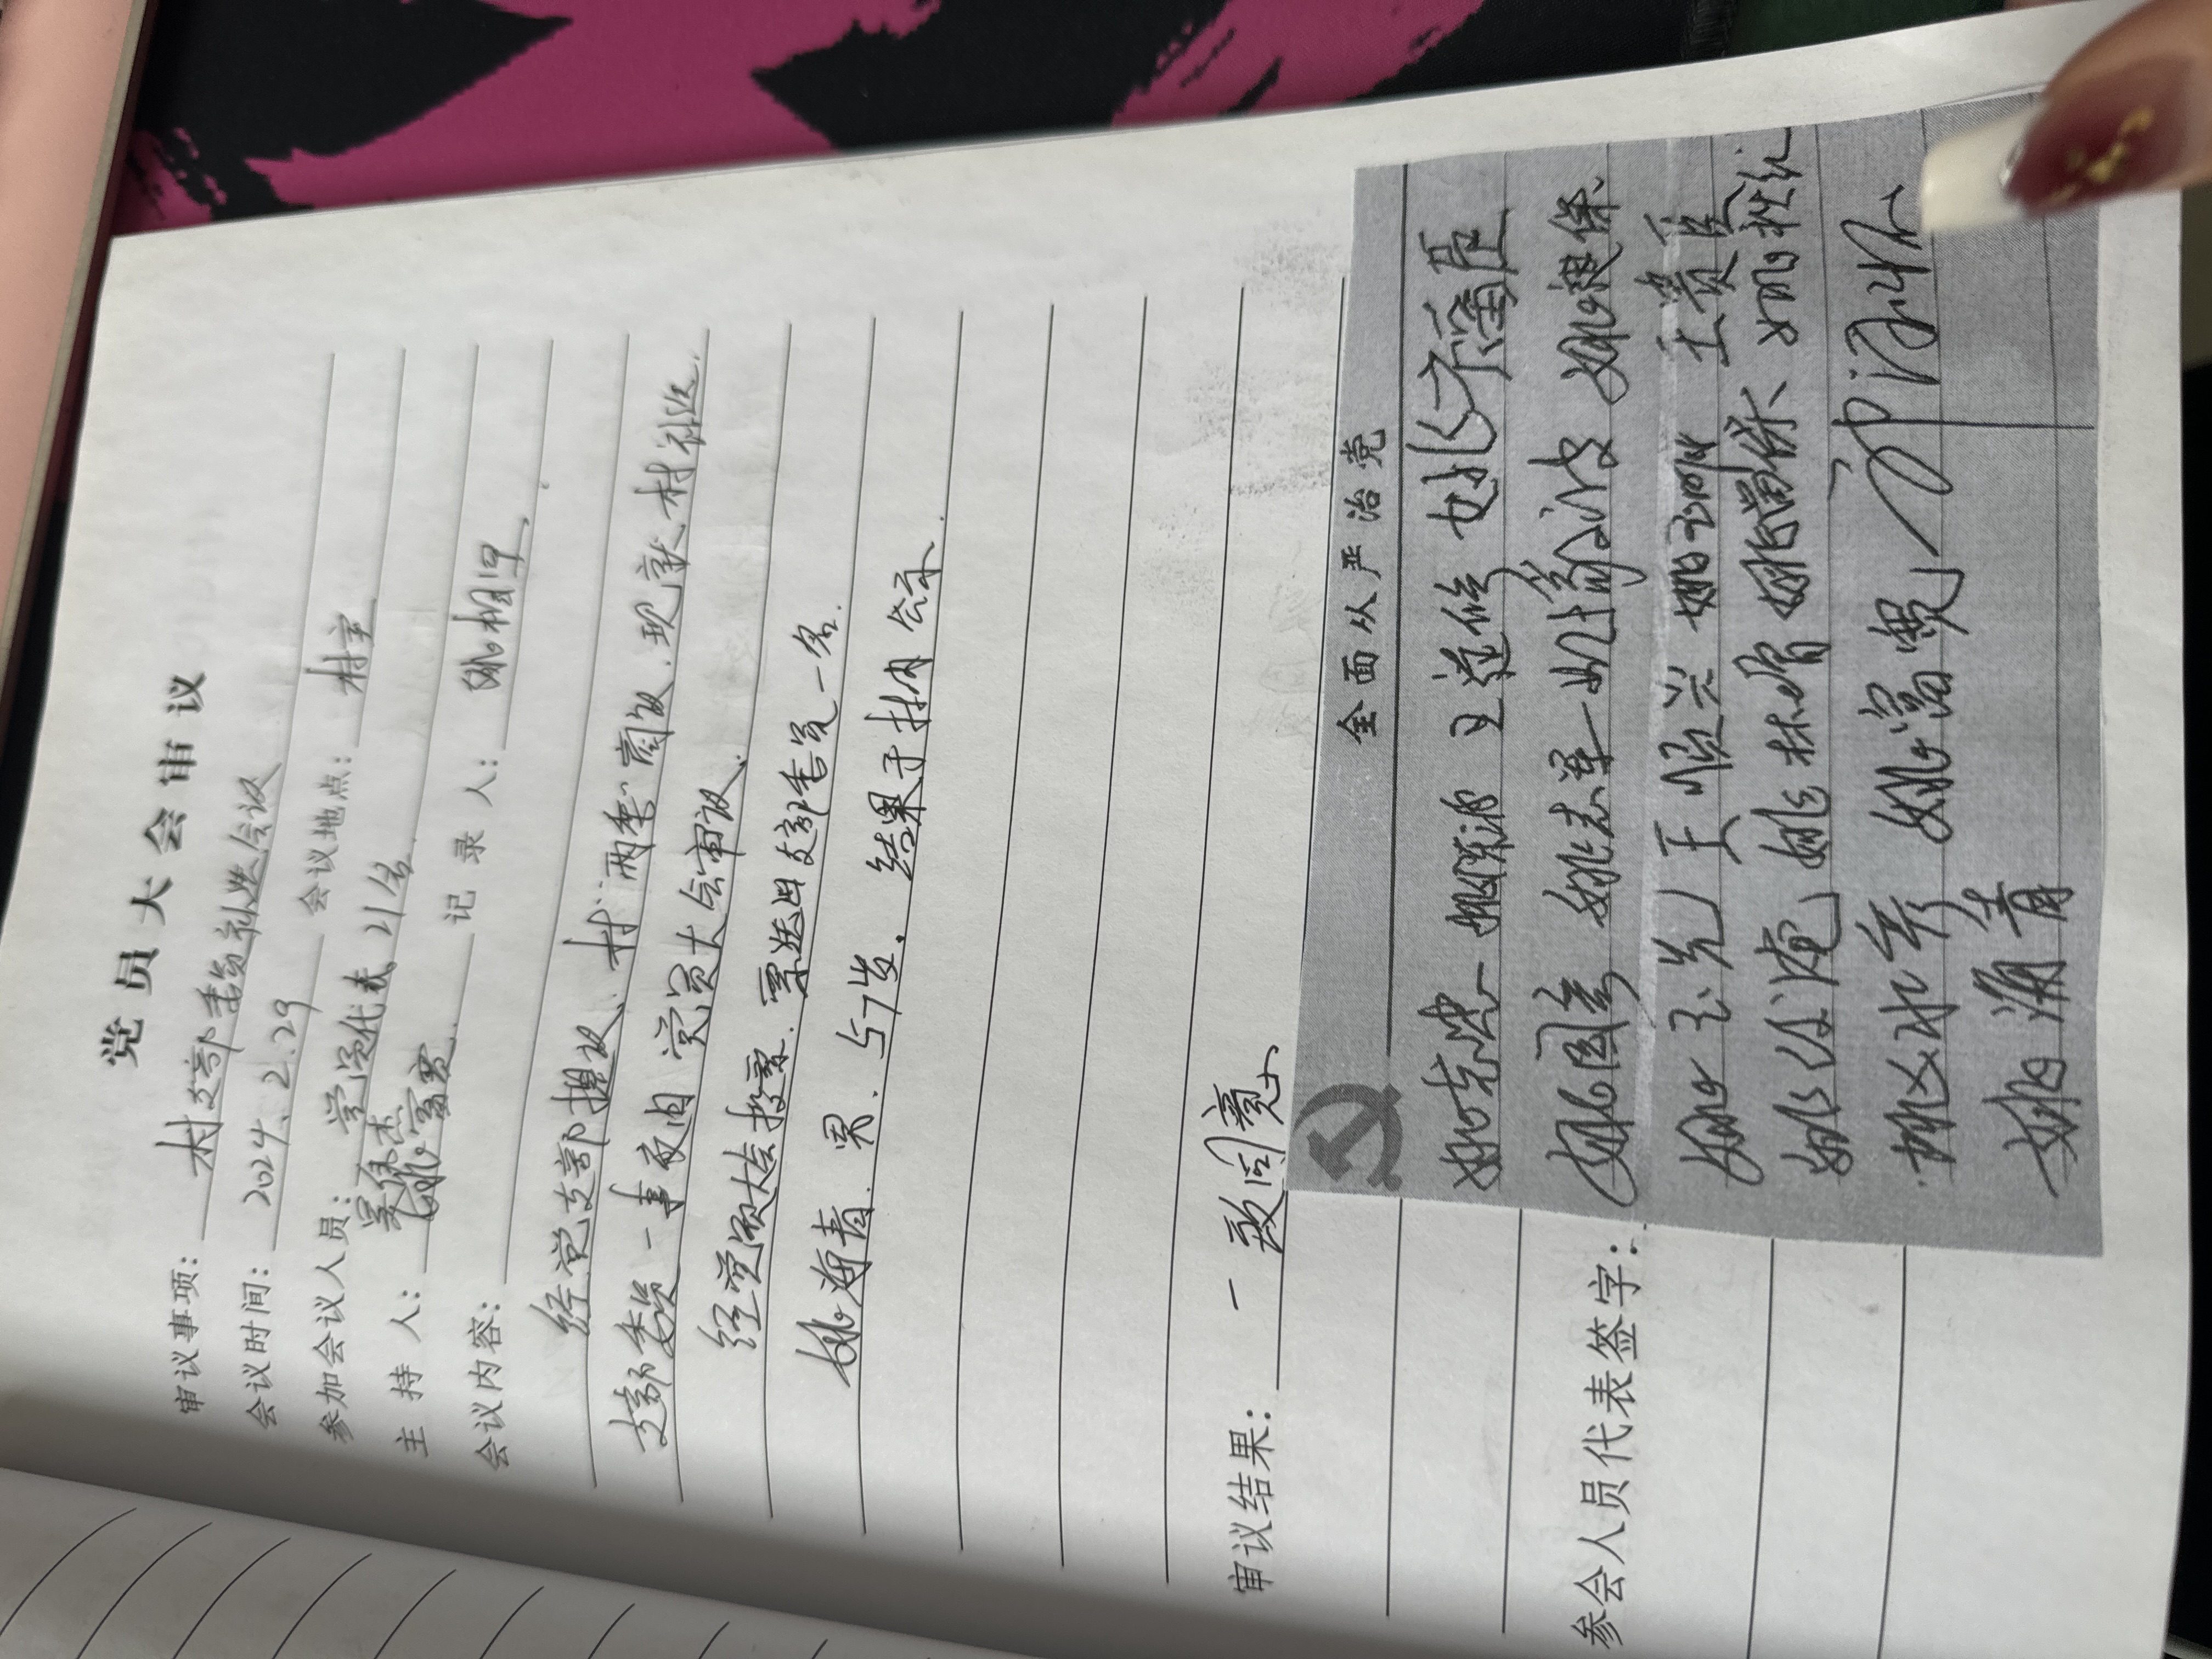 党员大会审议
审议事项: 村支部委员补选会议
会议时间: 2024.2.29 会议地点: 村室
参加会议人员: 党员代表21名.
杰
主持人: 姚富宽. 记录人: 姚相
会议内容:
经党支部提议、村“两委”商议.现就村补选
支部委员一事交由党员大会审议.
经党员大会投票.票选出支部委员一名.
姚海青.男.57岁.结果于村内公示.
审议结果: 一致同意
全面从严治党
姚志忠 姚 王 修 姚福臣
姚国 姚志军 波 姚建保
姚玉 王顺兴 姚 王贵臣
姚 姚林增 姚留保 姚秋红
姚水 姚富宽
姚海青
参会人员代表签字: